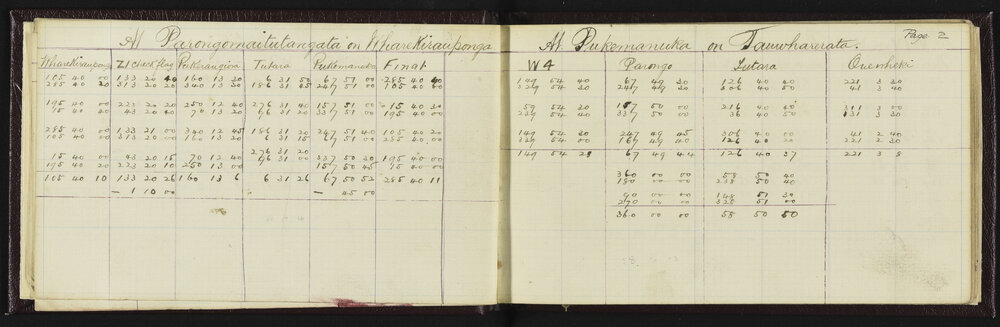 At Parongomaitutangata on Wharekirauponga
Wharekirauponga Z1 Black flag Pukekangiora Tutara Pukemanuka Final
105 40 00 133 20 40 160 13 30 6 31 50 67 51 00 285 40 40
285 40 20 313 20 20 340 13 30 186 31 45 247 51 00 105 40 00
195 40 00 223 20 20 250 12 40 276 31 40 157 51 00 15 40 30
15 40 20 43 20 00 70 13 20 96 31 20 337 51 00 195 40 00
285 40 00 133 21 00 340 12 45 186 31 20 247 51 40 105 40 20
105 40 00 313 20 00 160 13 20 6 31 15 67 51 00 285 40 00
276 31 20
15 40 00 43 20 15 70 12 40 96 31 00 337 50 30 195 40 00
195 40 20 223 20 10 250 13 00 157 50 45 15 40 00
105 40 10 133 20 26 160 13 6 6 31 26 67 50 52 285 40 11
— 1 10 00 — 45 00
At Pukemanuka on Tauwharerata. Page 2
W4 Parongo Tutara Onemheki
149 54 30 67 49 30 126 40 40 221 3 30
329 54 30 247 49 30 306 40 50 41 3 40
59 54 30 157 50 00 216 40 40 311 3 00
239 54 40 337 50 00 36 40 50 131 3 30
149 54 30 247 49 45 306 40 00 41 2 40
329 54 00 167 49 40 126 40 20 221 2 30
149 54 28 67 49 44 126 40 37 221 3 8
360 00 00 58 50 40
180 00 00 238 50 40
90 00 00 148 51 30
270 00 00 328 51 00
360 00 00 58 50 50